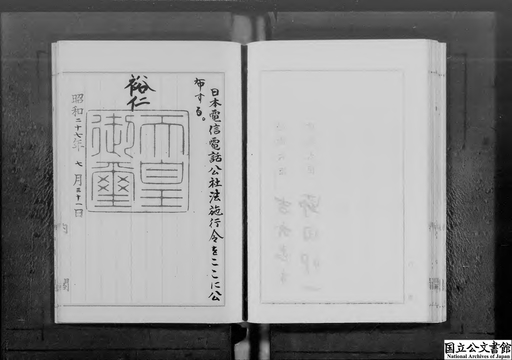 日本電信電話公社法施行令をここに公
布する。
裕仁
天皇
御璽
昭和二十七年七月三十一日
国立公文書館
National Archives of Japan